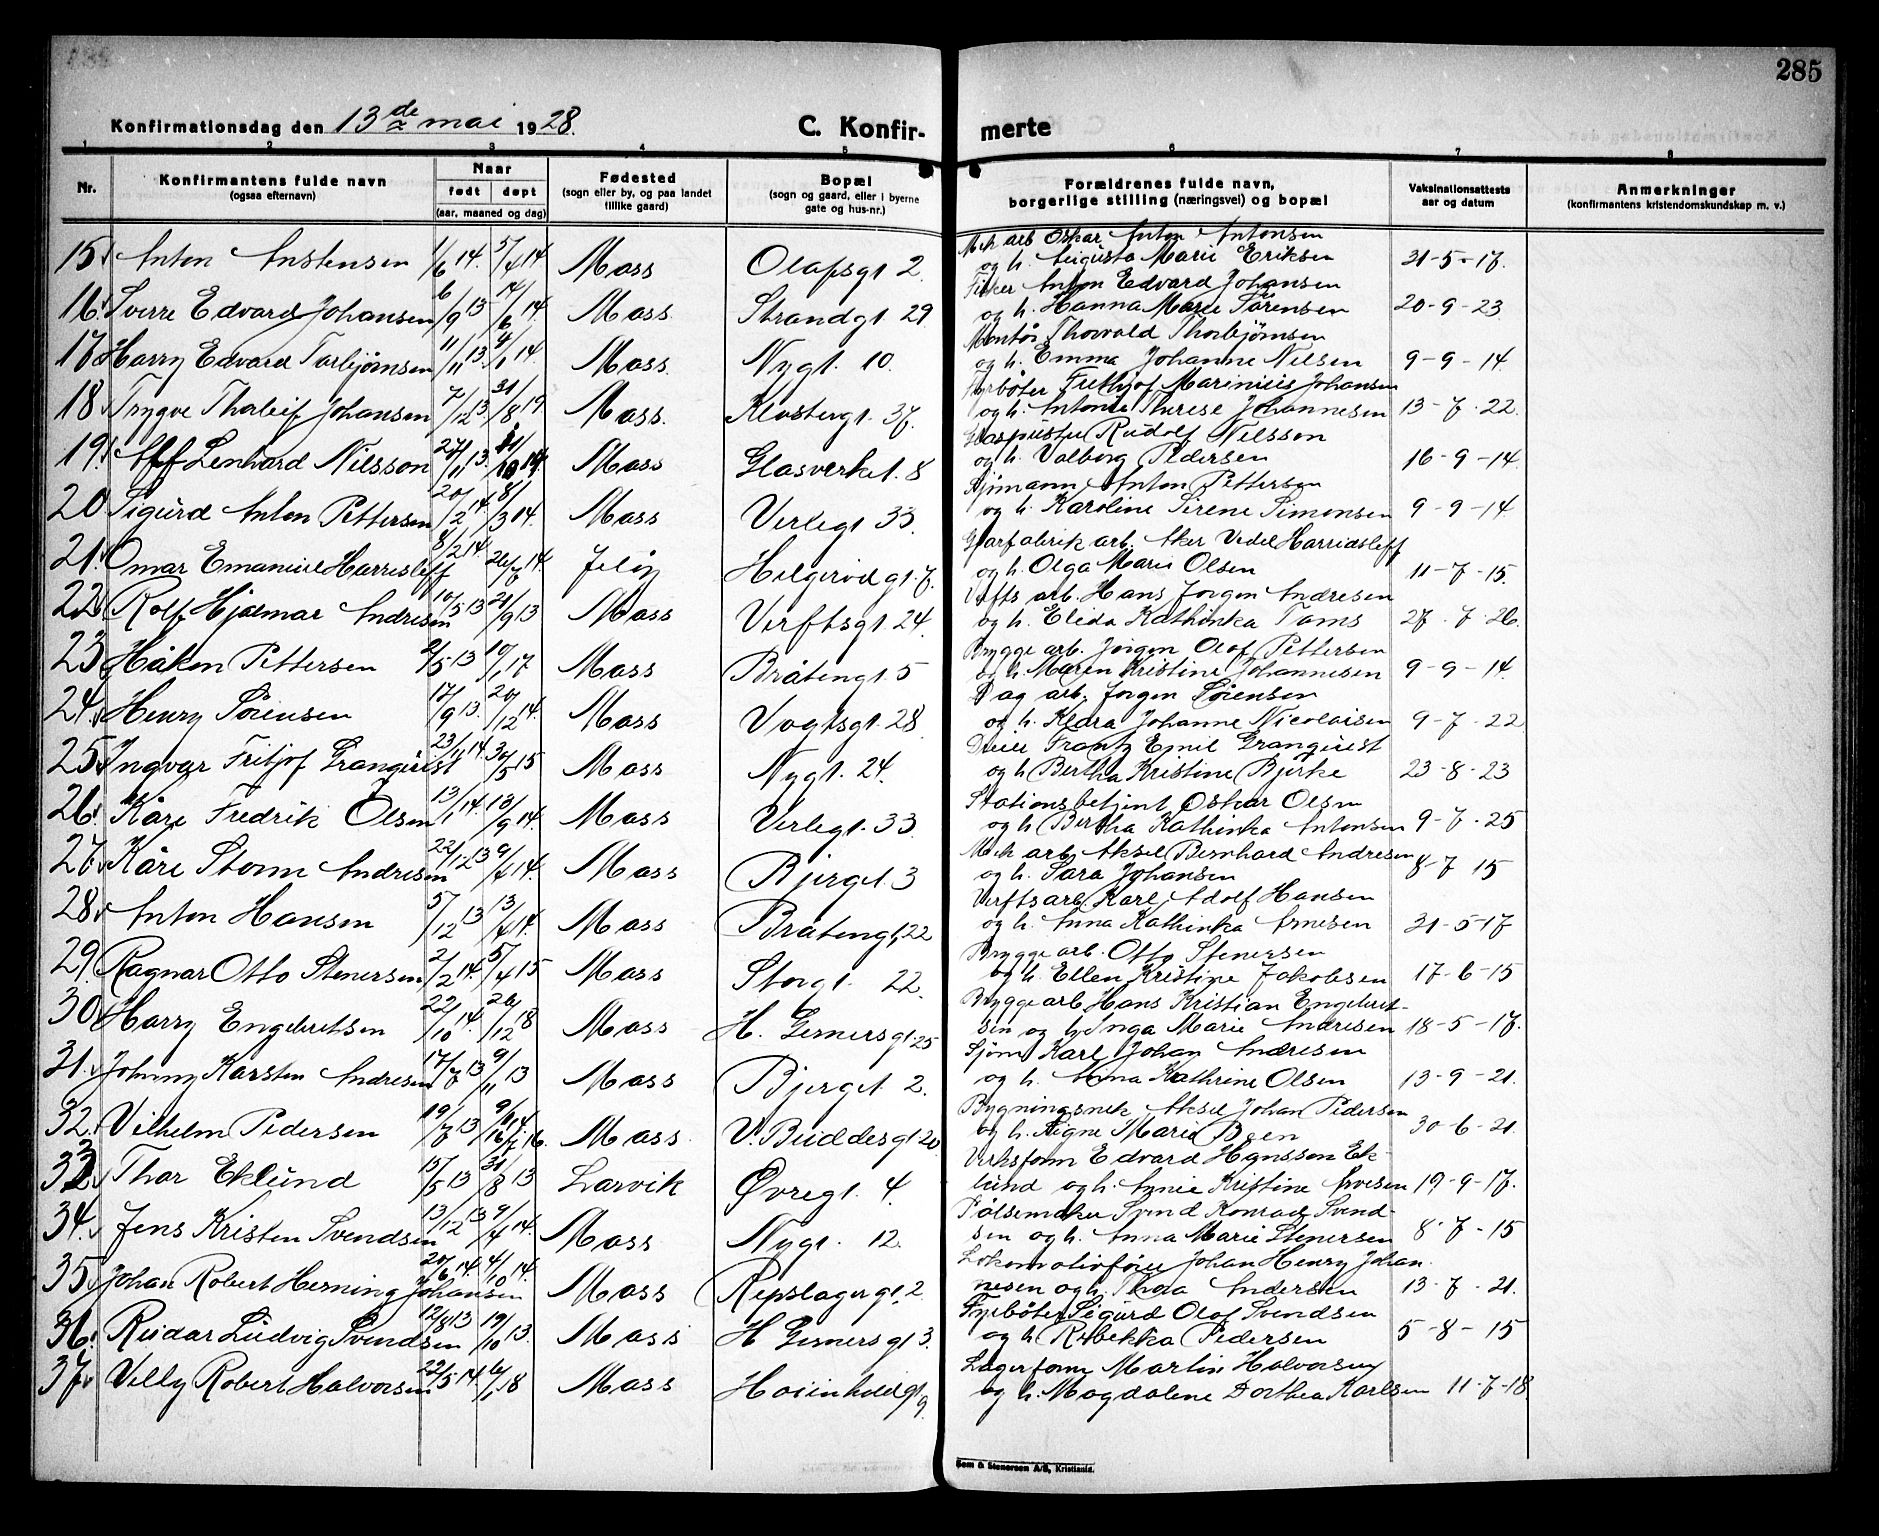 285
Konfirmationsdag den 13de mai 1928.
C. Konfir-
merte
1 2 3 4 5 6 7 8
Nr.
Konfirmantens fulde navn
(ogsaa efternavn)
Naar
født døpt
(aar, maaned og dag)
Fødested
(sogn eller by, og paa landet
tillike gaard)
Bopæl
(sogn og gaard, eller i byerne
gate og hus-nr.)
Forældrenes fulde navn,
borgerlige stilling (næringsvei) og bopæl
Vaksinationsattests
aar og datum
Anmerkninger
(konfirmantens kristendomskundskap m. v.)
Mek arb Oskar Anton Antonsen
15 Anton Anstensen 1/6 14. 5/4 14 Moss Olafsgt 2. og h. Augusta Marie Eriksen 31-5-17.
Fisker Anton Edvard Johansen
16. Sverre Edvard Johansen 6/9 13 14/6 14. Moss. Strandgt. 29 og h. Hanna Marie Sørensen 20-9-23
Montør Thorvald Thorbjørnsen
17 Harry Edvard Torbjørnsen 11/11 13. 4/1 14. Moss. Nygt. 10. og h. Emma Johanne Nilsen 9-9-14
Fyrbøter Frithjof Marinius Johansen
18 Trygve Thorleif Johansen 7/12 13. 31/8 19 Moss. Klostergt. 37. og h. Antonie Therese Johannesen 13-7-22.
Glaspuster Rudolf Nilsson
19. Aff Lenhard Nilsson 27/11 13. Moss Glasverket. 8 og h. Valborg Pedersen 16-9-14.
Sjømann Anton Pettersen
20 Sigurd Anton Pettersen 20/2 14. 8/3 14. Moss Verlegt 33. og h. Karoline Sirene Simonsen 9-9-14.
Garfabrik arb. Aker Vedel Harridsleff
21. Omar Emanuel Harrisleff 8/2 14. 26/7 14. Jeløy Helgerød gt. 7. og h. Olga Marie Olsen 11-7-15.
Verfts arb. Hans Jørgen Andresen
22. Rolf Hjalmar Andresen 10/5 13 21/9 13 Moss Verftsgt 24. og h. Elida Kathinka Tams 27-7-26.
Brygge arb. Jørgen Olof Pettersen
23 Håkon Pettersen 2/5 13 19/1 17 Moss Bråtengt. 5 og h. Maren Kristine Johannesen 9-9-14.
Dag arb. Jørgen Sørensen
24. Henry Sørensen 17/9 13. 20/12 14. Moss Vogtsgt. 28 og h. Klara Johanne Nicolaisen 9-7-22
Dreier Frantz Emil Granqvist
25. Ingvar Fritjof Granqvist 23/11 14. 30/5 15 Moss Nygt. 24. og h Bertha Kristine Bjerke 23-8-23
Stationsbetjent Oskar Olsen
26. Kåre Fredrik Olsen 13/1 14. 13/9 14. Moss Verlegt. 33. og h Bertha Kathinka Antonsen 9-7-25
Mek arb Aksel Bernhard Andresen
27 Kåre Storm Andresen 22/12 13 9/4 14. Moss Bjergt. 3 og h. Sara Johansen 8-7 15
Verftsarb. Karl Adolf Hansen
28 Anton Hansen 5/12 13 13/4 14. Moss Bråtengt, 22 og h. Anna Kathinka Arnesen 31-5-17
Brygge arb. Otto Stenersen
29. Ragnar Otto Stenersen 2/2 14. 5/4 15 Moss Storgt. 22. og h. Ellen Kristine Jakobsen 17-6-15
Brygge arb Hans Kristian Engebret-
30 Harry Engebretsen 22/10 14. 26/12 18 Moss H. Gernersgt. 25 sen og h. Inga Marie Andresen 18-5-17.
Sjøm Karl Johan Andresen
31. Johnny Karsten Andresen 17/7 13 9/11 13 Moss Bjergt 2. og h. Anna Kathrine Olsen 13-9-21.
Bygningssnek Aksel Johan Pedersen
32. Vilhelm Pedersen 19/7 13 Moss. V. Buddesgt. 20 og h. Signe Marie Boen 30-6-21.
Verksform Edvard Hansson Ek-
33 Thor Eklund 15/5 13 31/8 13 Larvik Øvregt. 4. lund og h. Annie Kristine Iversen 19-9-17.
Pølsemaker Svend Konrad Svend-
34. Jens Kristen Svendsen 13/12 13 9/4 14. Moss Nygt. 12. sen og h. Anna Marie Stenersen 8-7-15
Lokomotivfører Johan Henry Johan
35. Johan Robert Herning Johansen 20/6 14. 4/10 14. Moss Repslagergt. 2. nesen og h. Thea Andersen 13-7-21.
Fyrbøter Sigurd Olof Svendsen
36. Reidar Ludvig Svendsen 12/8 13 19/10 13. Moss H Gernersgt 3. og h Rebekka Pedersen 5-8-15
Lagerform Martin Halvorsen
37. Villy Robert Halvorsen 22/5 14 6/1 18 Moss Hoienholdgt 9. og h. Magdalene Dorthea Karlsen 11-7-18
Sem & Stenersen A/S, Kristiania.